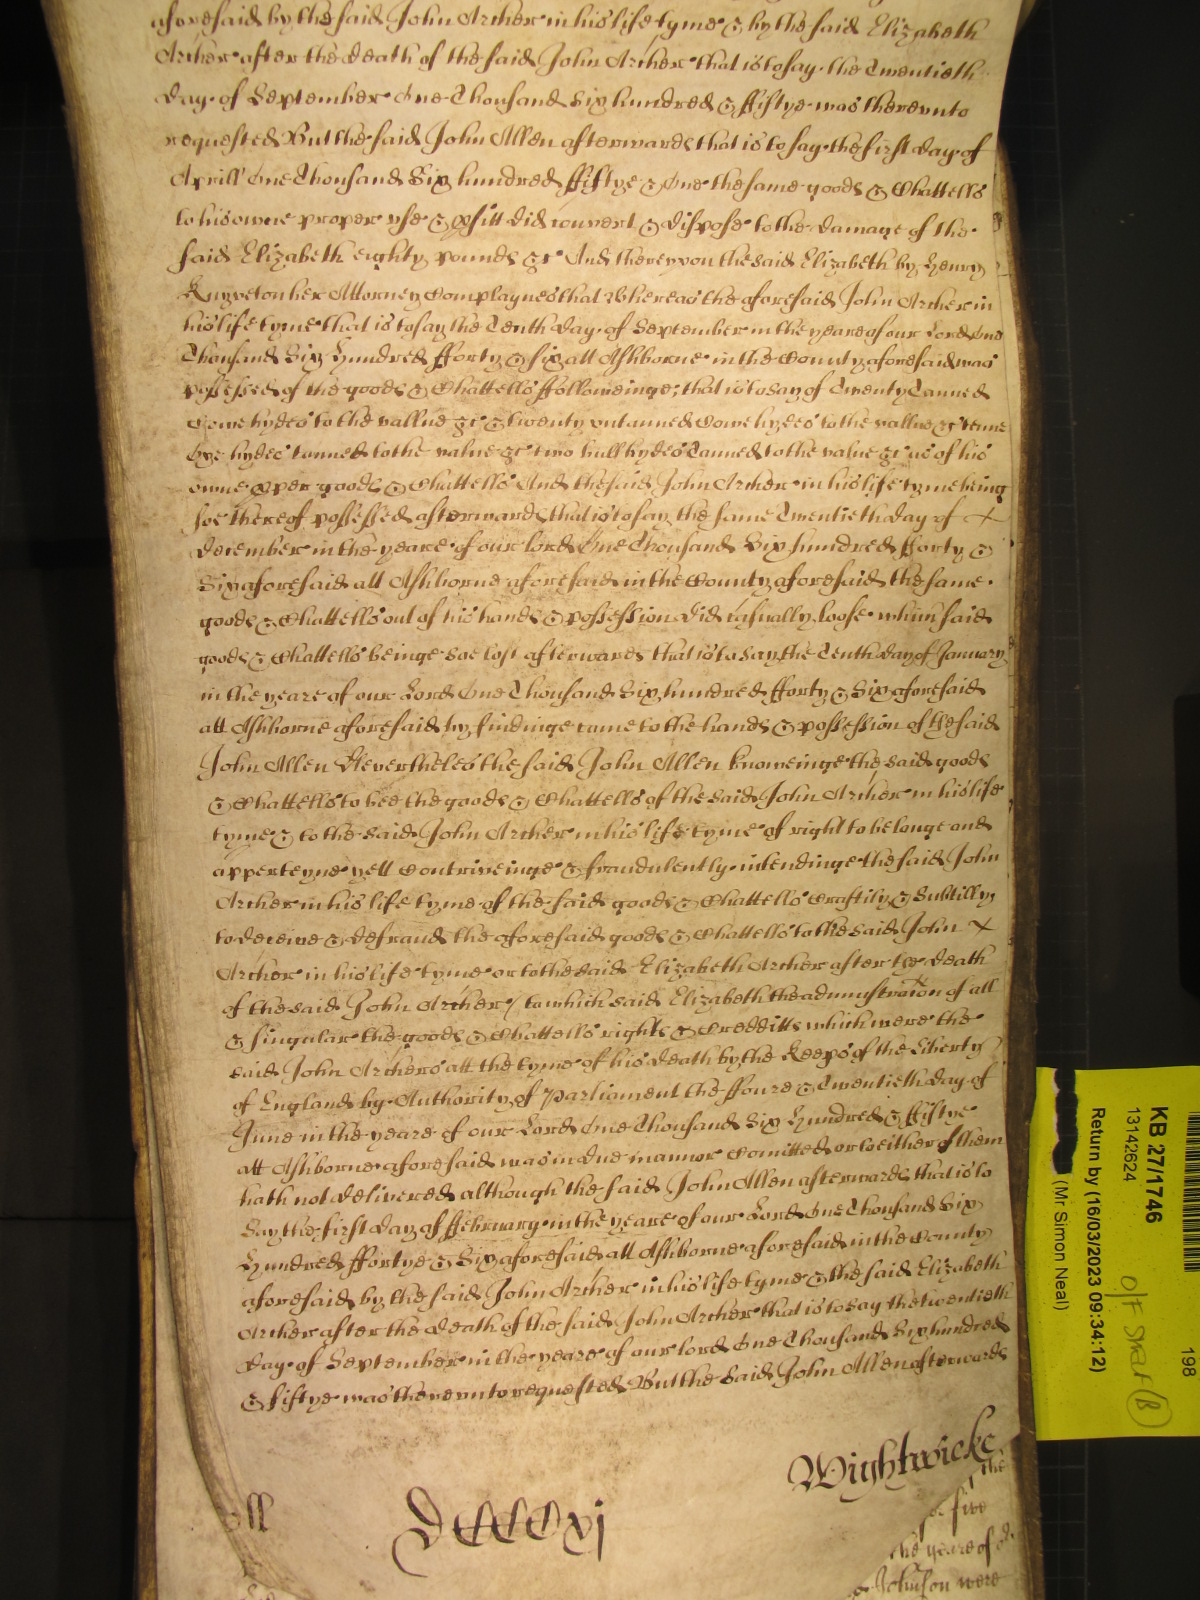 aforesaid by the said John Archer in his life tyme & by the said Elizabeth
Archer after the death of the said John Archer that is to say the Twentieth
day of September One Thousand Six hundred & ffiftye was therevnto
requested But the said John Allen afterwards that is to say the first day of
Aprill One Thousand Six hundred ffiftye & One the same goods & Chattells
to his owne proper vse & did convert & dispose to the damage of the
said Elizabeth eighty pounds &c And therevpon the said Elizabeth by Henry
Knyveton her Attorney Complaynes that Whereas the aforesaid John Archer in
his life tyme that is to say the Tenth day of September in the yeare of our Lord One
Thousand Six Hundred fforty & six att Ashborne in the County aforesaid was
possessed of the goods & Chattells ffolloweinge; that is to say of Twenty Tanned
Cowe hydes to the vallue &c & twenty vntanned Cowe hydes to the vallue &c tenne
hydes tanned to the value &c two bull hydes Tanned to the value &c as of his
owne pper goods & Chattells And the said John Archer in his life tyme being
soe thereof possessed afterwards that is to say the same Twentieth day of
December in the yeare of our lord One Thousand Six hundred fforty &
Six aforesaid att Ashborne aforesaid in the County aforesaid the same
goods & Chattells out of his hands & possession did casually loose which said
goods & Chattells beinge soe lost afterwards that is to say the Tenth day of January
in the yeare of our Lord One Thousand Six hundred fforty & Six aforesaid
att Ashborne aforesaid by findinge came to the hands & possession of the said
John Allen Neverthelesse the said John Allen knoweinge the said goods
& Chattells to bee the goods & Chattells of the said John Archer in his life
tyme & to the said John Archer in his life tyme of right to belonge and
apperteyne yett Contriveinge & fraudulently intendinge the said John
Archer in his life tyme of the said goods & Chattells Craftily & Subtilly
to deceive & defraud the aforesaid goods & Chattells to the said John
Archer in his life tyme or to the said Elizabeth Archer after the death
of the said John Archer, to which said Elizabeth the administracon of all
& singular the goods & Chattells rights & Credditts which were the
said John Archers att the tyme of his death by the Keeps of the Liberty
of England by Authority of Parliament the ffoure & Twentieth day of
June in the yeare of our Lord One Thousand Six Hundred & ffiftye
att Ashborne aforesaid was in due manner Comitted or to either of them
hath not delivered although the said John Allen afterwards that is to
Say the first day of ffebruary in the yeare of our Lord One Thousand Six
Hundred ffortye & Six aforesaid att Ashborne aforesaid in the County
aforesaid by the said John Archer in his life tyme & the said Elizabeth
Archer after the death of the said John Archer that is to say the twentieth
day of September in the yeare of our lord One Thousand Six hundred
& fiftye was therevnto requested But the said John Allen afterwards
Wightwicke
DCCCCxj
the
five
the yeare of
Johnson were
KB 27/1746
13142624
Return by (16/03/2023 09:34:12)
(Mr Simon Neal)
198